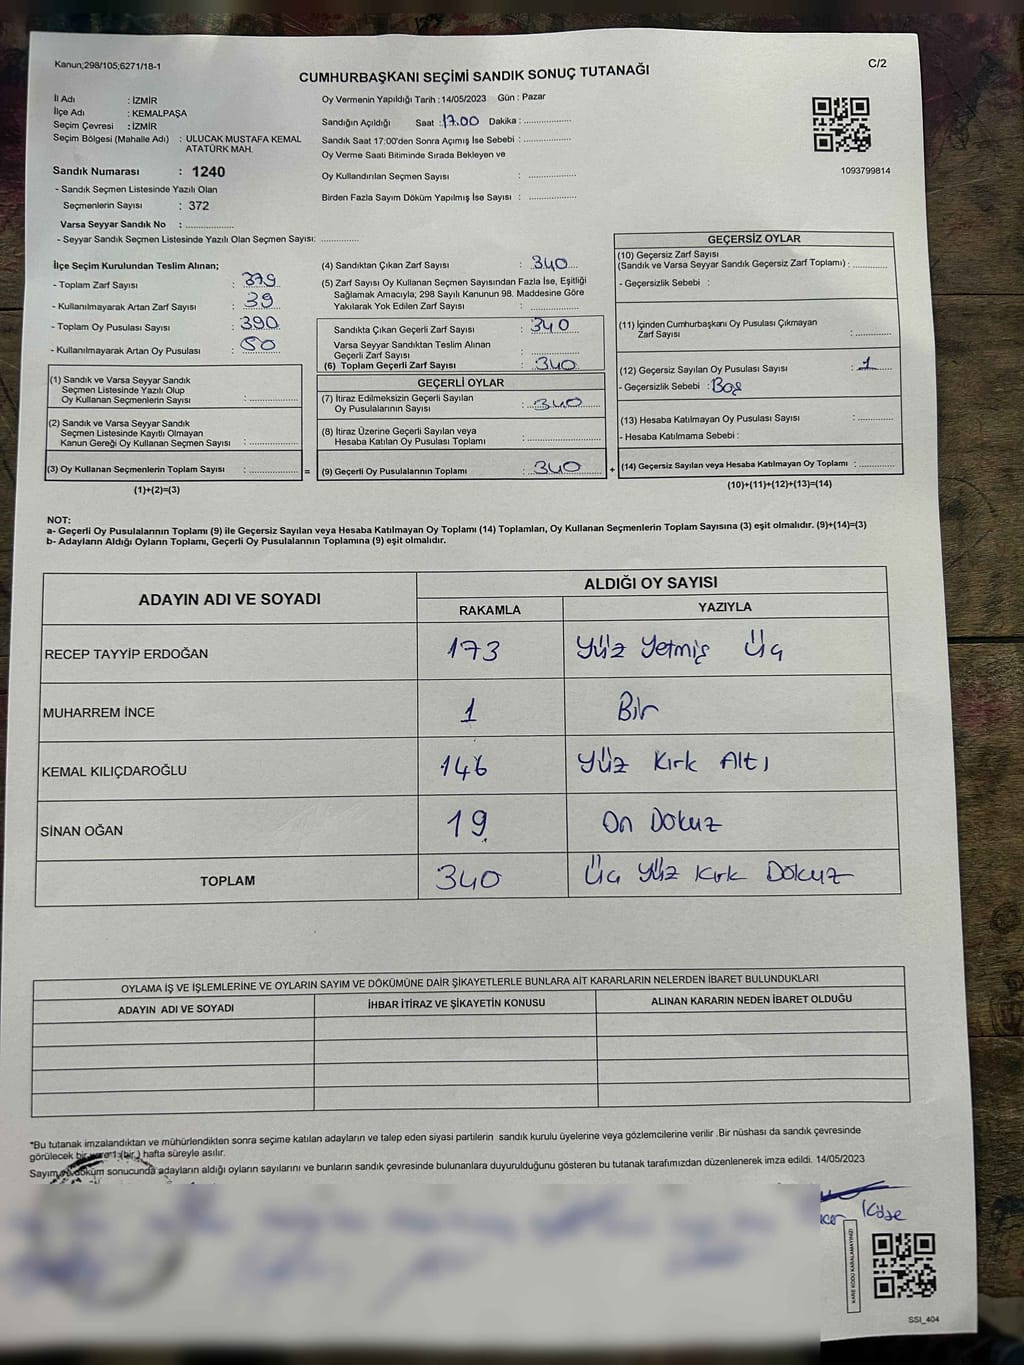 Kanun;298/105;6271/18-1
C/2
CUMHURBAŞKANI SEÇİMİ SANDIK SONUÇ TUTANAĞI
İl Adı : İZMİR
İlçe Adı : KEMALPAŞA
Seçim Çevresi : İZMİR
Seçim Bölgesi (Mahalle Adı) : ULUCAK MUSTAFA KEMAL
ATATÜRK MAH.
Sandık Numarası : 1240
- Sandık Seçmen Listesinde Yazılı Olan
Seçmenlerin Sayısı : 372
Varsa Seyyar Sandık No : ................
- Seyyar Sandık Seçmen Listesinde Yazılı Olan Seçmen Sayısı: ............
Oy Vermenin Yapıldığı Tarih : 14/05/2023 Gün : Pazar
Sandığın Açıldığı Saat : 17.00 Dakika : ................
Sandık Saat 17:00'den Sonra Açımış İse Sebebi : ................
Oy Verme Saati Bitiminde Sırada Bekleyen ve
Oy Kullandırılan Seçmen Sayısı : ................
Birden Fazla Sayım Döküm Yapılmış İse Sayısı : ................
1093799814
İlçe Seçim Kurulundan Teslim Alınan;
- Toplam Zarf Sayısı : 379
- Kullanılmayarak Artan Zarf Sayısı : 39
- Toplam Oy Pusulası Sayısı : 390
- Kullanılmayarak Artan Oy Pusulası : 50
(1) Sandık ve Varsa Seyyar Sandık
Seçmen Listesinde Yazılı Olup
Oy Kullanan Seçmenlerin Sayısı : ................
(2) Sandık ve Varsa Seyyar Sandık
Seçmen Listesinde Kayıtlı Olmayan
Kanun Gereği Oy Kullanan Seçmen Sayısı : ................
(3) Oy Kullanan Seçmenlerin Toplam Sayısı : ................ =
(1)+(2)=(3)
(4) Sandıktan Çıkan Zarf Sayısı : 340
(5) Zarf Sayısı Oy Kullanan Seçmen Sayısından Fazla İse, Eşitliği
Sağlamak Amacıyla; 298 Sayılı Kanunun 98. Maddesine Göre
Yakılarak Yok Edilen Zarf Sayısı : ................
Sandıkta Çıkan Geçerli Zarf Sayısı : 340
Varsa Seyyar Sandıktan Teslim Alınan
Geçerli Zarf Sayısı : ................
(6) Toplam Geçerli Zarf Sayısı : 340
GEÇERLİ OYLAR
(7) İtiraz Edilmeksizin Geçerli Sayılan
Oy Pusulalarının Sayısı : 340
(8) İtiraz Üzerine Geçerli Sayılan veya
Hesaba Katılan Oy Pusulası Toplamı : ................
(9) Geçerli Oy Pusulalarının Toplamı : 340 +
GEÇERSİZ OYLAR
(10) Geçersiz Zarf Sayısı
(Sandık ve Varsa Seyyar Sandık Geçersiz Zarf Toplamı) : ............
- Geçersizlik Sebebi :
(11) İçinden Cumhurbaşkanı Oy Pusulası Çıkmayan
Zarf Sayısı : ............
(12) Geçersiz Sayılan Oy Pusulası Sayısı : 1
- Geçersizlik Sebebi : Boş
(13) Hesaba Katılmayan Oy Pusulası Sayısı : ............
- Hesaba Katılmama Sebebi :
(14) Geçersiz Sayılan veya Hesaba Katılmayan Oy Toplamı : ............
(10)+(11)+(12)+(13)=(14)
NOT:
a- Geçerli Oy Pusulalarının Toplamı (9) ile Geçersiz Sayılan veya Hesaba Katılmayan Oy Toplamı (14) Toplamları, Oy Kullanan Seçmenlerin Toplam Sayısına (3) eşit olmalıdır. (9)+(14)=(3)
b- Adayların Aldığı Oyların Toplamı, Geçerli Oy Pusulalarının Toplamına (9) eşit olmalıdır.
ADAYIN ADI VE SOYADI
ALDIĞI OY SAYISI
RAKAMLA YAZIYLA
RECEP TAYYİP ERDOĞAN 173 Yüz Yetmiş Üç
MUHARREM İNCE 1 Bir
KEMAL KILIÇDAROĞLU 146 Yüz Kırk Altı
SİNAN OĞAN 19 On Dokuz
TOPLAM 340 Üç Yüz Kırk Dokuz
OYLAMA İŞ VE İŞLEMLERİNE VE OYLARIN SAYIM VE DÖKÜMÜNE DAİR ŞİKAYETLERLE BUNLARA AİT KARARLARIN NELERDEN İBARET BULUNDUKLARI
ADAYIN ADI VE SOYADI İHBAR İTİRAZ VE ŞİKAYETİN KONUSU ALINAN KARARIN NEDEN İBARET OLDUĞU
*Bu tutanak imzalandıktan ve mühürlendikten sonra seçime katılan adayların ve talep eden siyasi partilerin sandık kurulu üyelerine veya gözlemcilerine verilir .Bir nüshası da sandık çevresinde
görülecek bir yere 1 (bir ) hafta süreyle asılır.
Sayım ve döküm sonucunda adayların aldığı oyların sayılarını ve bunların sandık çevresinde bulunanlara duyurulduğunu gösteren bu tutanak tarafımızdan düzenlenerek imza edildi. 14/05/2023
Köse
KARE KODU KARALAMAYINIZ!
SSI_404